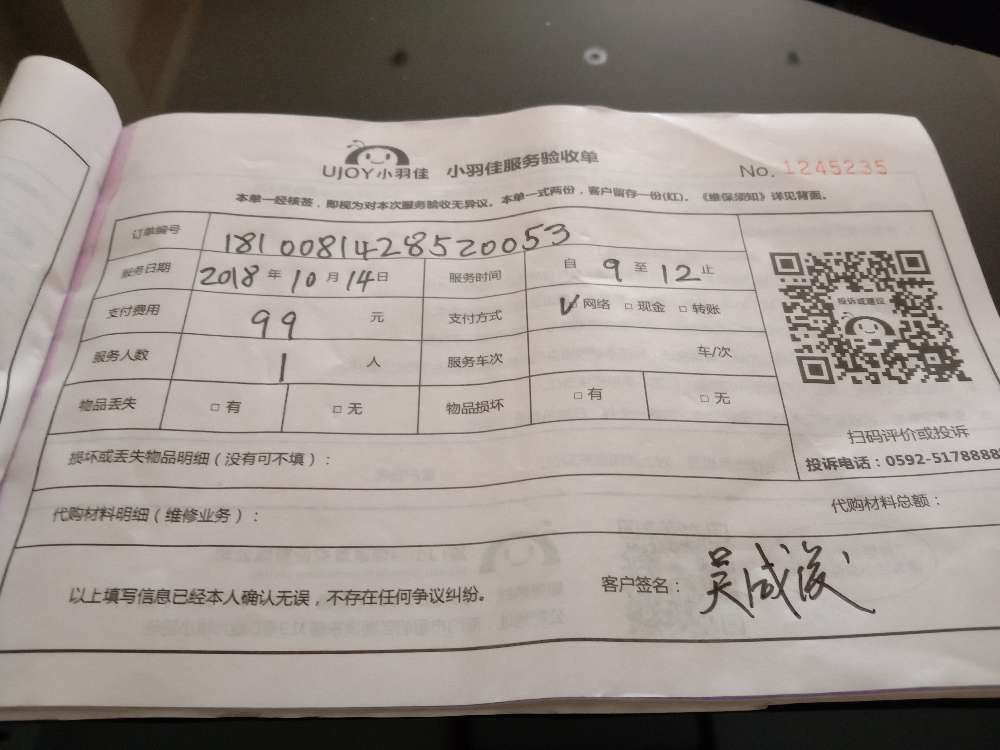 UJOY小羽佳 小羽佳服务验收单 No. 1245235
本单一经核签，即视为对本次服务验收无异议。本单一式两份，客户留存一份(红)。《维保须知》详见背面。
订单编号 1810081428520053
服务日期 2018 年 10 月 14 日 服务时间 自 9 至 12 止
支付费用 99 元 支付方式 ☑ 网络 □ 现金 □ 转账
服务人数 1 人 服务车次 车/次
物品丢失 □ 有 □ 无 物品损坏 □ 有 □ 无
投诉或建议
扫码评价或投诉
投诉电话：0592-5178888
损坏或丢失物品明细（没有可不填）：
代购材料明细（维修业务）： 代购材料总额：
以上填写信息已经本人确认无误，不存在任何争议纠纷。 客户签名：吴成俊